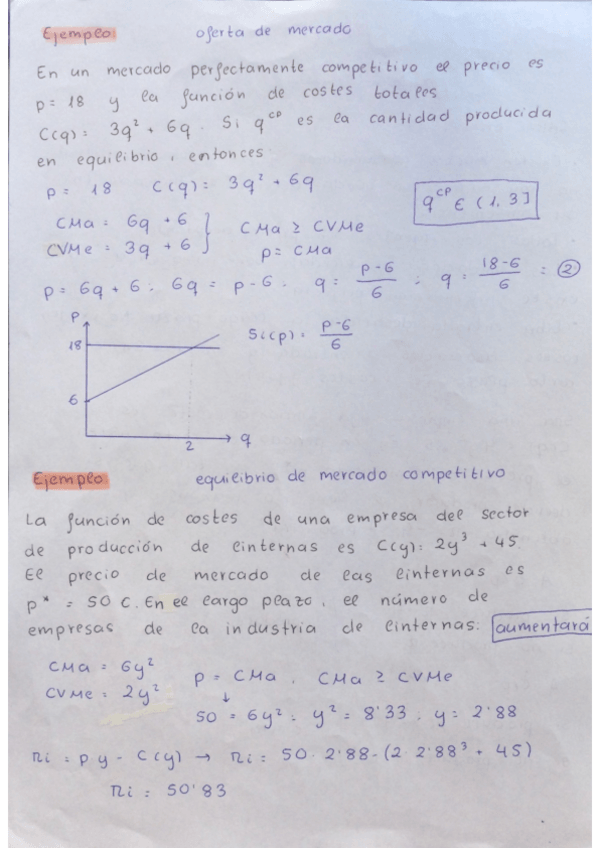 Ejemplo oferta de mercado
En un mercado perfectamente competitivo el precio es
p = 18 y la función de costes totales
C(q) = 3q² + 6q. Si q^CP es la cantidad producida
en equilibrio, entonces
p = 18 C(q) = 3q² + 6q
q^CP ∈ (1, 3]
CMa = 6q + 6
CVMe = 3q + 6
CMa ≥ CVMe
p = CMa
p = 6q + 6. 6q = p - 6. q = (p-6)/6 ; q = (18-6)/6 = 2
P
18
6
2
q
Si(p) = (p-6)/6
Ejemplo equilibrio de mercado competitivo
La función de costes de una empresa del sector
de producción de linternas es C(y) = 2y³ + 45.
El precio de mercado de las linternas es
p* = 50 €. En el largo plazo, el número de
empresas de la industria de linternas: aumentará
CMa = 6y²
CVMe = 2y²
p = CMa, CMa ≥ CVMe
↓
50 = 6y² = y² = 8'33. y = 2'88
πi = p y - C(y) → πi = 50·2'88 - (2·2'88³ + 45)
πi = 50'83